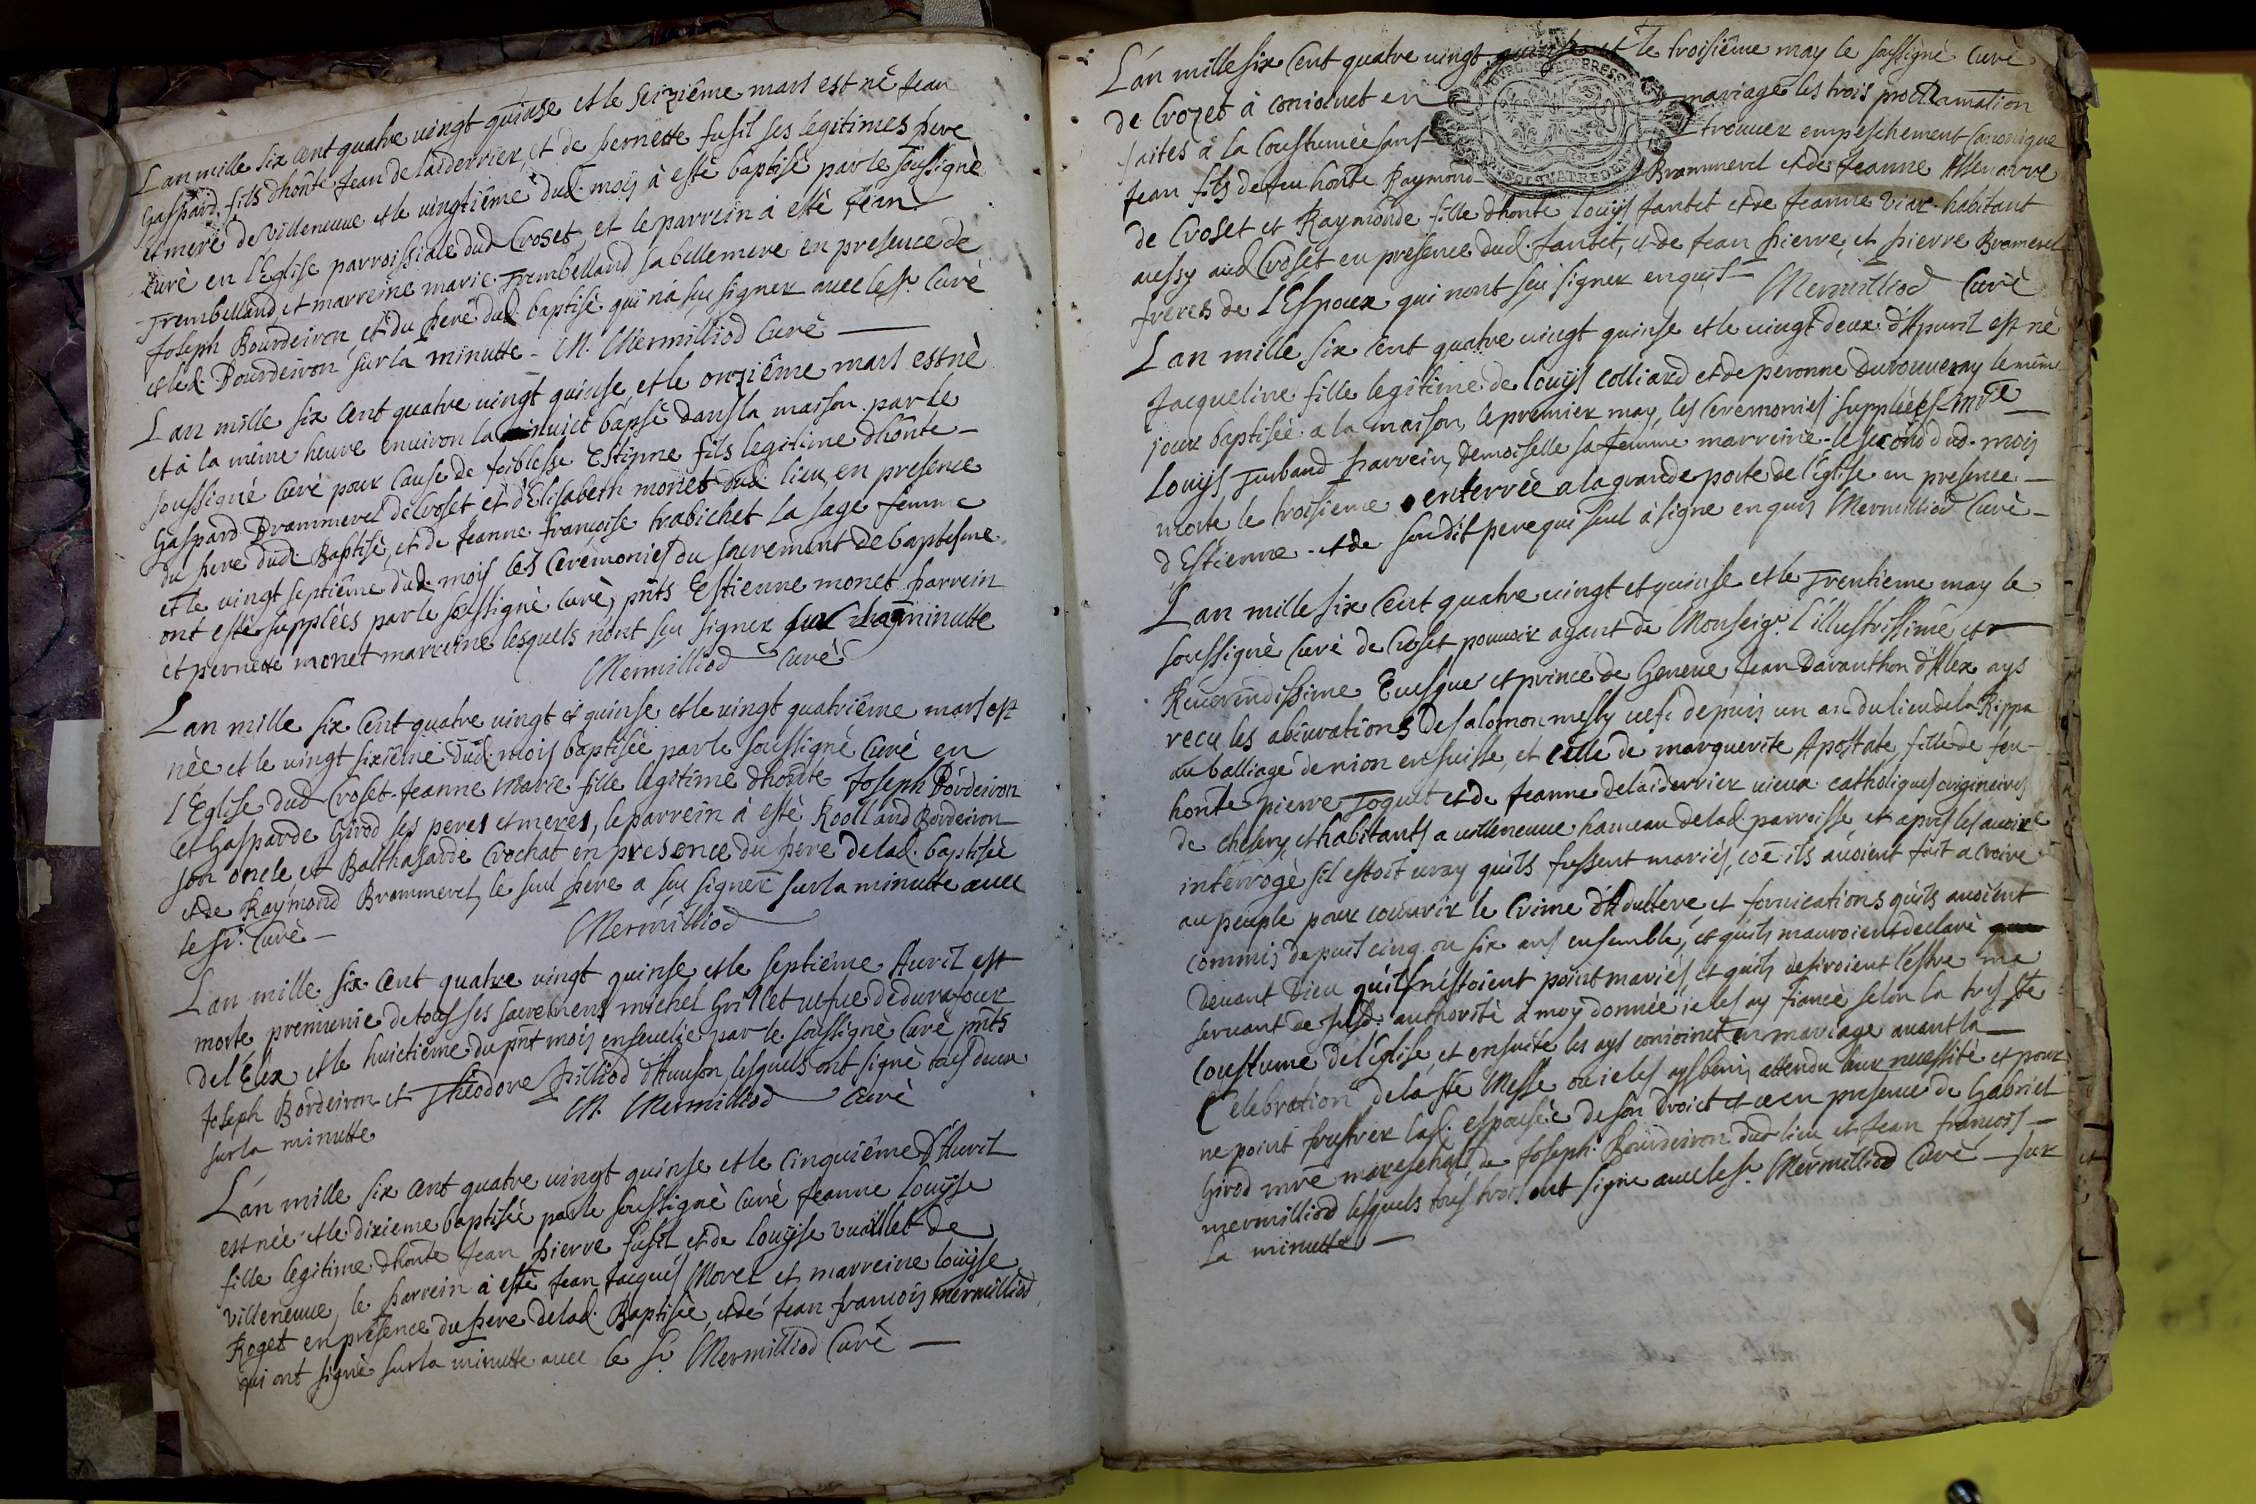 Lan mille six cent quatre vingt quinse et le seizième mars est nè Jean
Gaspard fils dhonte Jean delaiderrier, et de pernette fusil ses legitimes pere
et mere de villeneuve et le vingtième dud. mois à estè baptisè par le soussignè
curè en l'Eglise parroissiale dud Croset, et le parrein a estè Jean
Trembelland et marreine marie Trembelland sa bellemere en presence de
Joseph Bourdeiron, et du pere dud. baptisè qui n'a sçu signer avec le sr. Curè
et led. Bourdeiron sur la minutte - M. Mermilliod Curè
Lan mille six cent quatre vingt quinse, et le onzième mars est nè
et à la même heure environ la minuict bapsè dans la maison par le
soussignè Curè pour cause de foiblesse Estienne fils legitime dhonte
Gaspard Brammerel de Croset et d'Elisabeth monet dud. lieu, en presence
du pere dud. Baptisè, et de Jeanne françoise trabichet la sage femme
et le vingt septième dud. mois les Cerèmonies du sacrement de baptesme
ont estè supplèes par le soussignè curè, pnts Estienne monet parrein
et pernette monet marreine lesquels n'ont sçu signer sur la minutte
Mermilliod Curè
Lan mille six cent quatre vingt et quinse et le vingt quatrième mars est
nèe et le vingt sixième dud. mois baptisèe par le soussignè Curè en
l'Eglise dud Croset Jeanne Marie fille legitime dhonte Joseph Bordeiron
et Gasparde Girod ses peres et meres, le parrein à estè Rolland Bordeiron
son oncle et Balthasarde Crochat en presence du pere delad. baptisèe
et de Raymond Brammerel, le seul pere a sçu signer sur la minutte avec
le sr. Curè - Mermilliod
Lan mille six cent quatre vingt quinse et le septième Avril est
morte premunie de tous ses sacremens michel Grillet vefve deduratour
del'Elex et le huictième du pnt mois ensevelie par le soussignè Curè pnts
Joseph Bordeiron et Theodore pilliod d'Avuson, lesquels ont signè tous deux
sur la minutte M. Mermilliod Curè
L'an mille six cent quatre vingt quinse et le cinquième d'Avril
est nèe et le dixieme baptisèe par le soussignè curè Jeanne Louyse
fille legitime dhonte Jean pierre fusil, et de Louyse vuaillet de
villeneuve, le parrein à estè Jean Jacques Morel et marreine Louyse
Roget en presence du pere delad. Baptisèe, et de Jean francois mermilliod
qui ont signè sur la minutte avec le sr. Mermilliod Curè
L'an mille six cent quatre vingt quinse et le troisième may le soussignè Curè
de Crozet à conioinct en mariage les trois proclamation
faites à la Coustumèe sans trouver empeschement Canonique
Jean fils de feu honte Raymond Brammerel et de Jeanne Allenarre
de Croset et Raymonde fille dhonte Louys fantet et de Jeanne viar habitant
aussy aud Croset en presence dud. fantet, et de Jean pierre, et pierre Bramerel
freres de l'Espoux qui n'ont sçu signer enquis Mermilliod Curè
L an mille six cent quatre vingt quinse et le vingt deux d'Apuril est nè
Jacqueline fille legitime de Louys Colliard et de peronne Durouveray le même
jour baptisèe a la maison, le premier may, les ceremonies supplèées Mre
Louys Turband parrein, demoiselle sa femme marreine, le second dud. mois
morte le troisieme enterrèe a la grande porte de l'Eglise en presence
d'Estienne et de son dit pere qui seul à signe enquis Mermilliod Curè
L an mille six cent quatre vingt et quinse et le Trentieme may le
soussignè Curè de Croset pouvoir ayant de Monseigr. l'illustrissime et
Reverendissime Evesque et prince de Geneve Jean Daranthon d'Alex ays
reçu les abiurations de salomon mestry vefs depuis un an du lieu dela Rippa
au balliage de nion en suisse, et celle de marguerite Apostate fille de feu
honte pierre Joquet et de Jeanne delaiderrier vieux catholiques originaires
de chesery et habitants a villeneuve hameau delad. parroisse, et apres les avoir
interrogè sil estoit vray quils fussent mariès, coe ils avoient fait acroire
au peuple pour couvrir le Crime d'Adultere et fornications quils avoient
commis depuis cinq ou six ans ensemble, et quils m'auroient declarè
devant Dieu quils n'éstoient point mariès, et quils desiroient l'estre me
servant de susd. authoritè à moy donnèe ie les ay fiancè selon la trss ste
Coustume del'Eglise, et ensuitte les ays conioinct en mariage avant la
Celebration dela ste Messe ou ie les ays beni, attendu leur necessitè et pour
ne point frustrer lad. espousèe de son droict et ce en presence de Gabriel
Girod mre mareschal, de Joseph Bourdeiron dud lieu et Jean francois
mermilliod lesquels tous trois ont signe avec le sr. Mermilliod Curè sur
la minutte